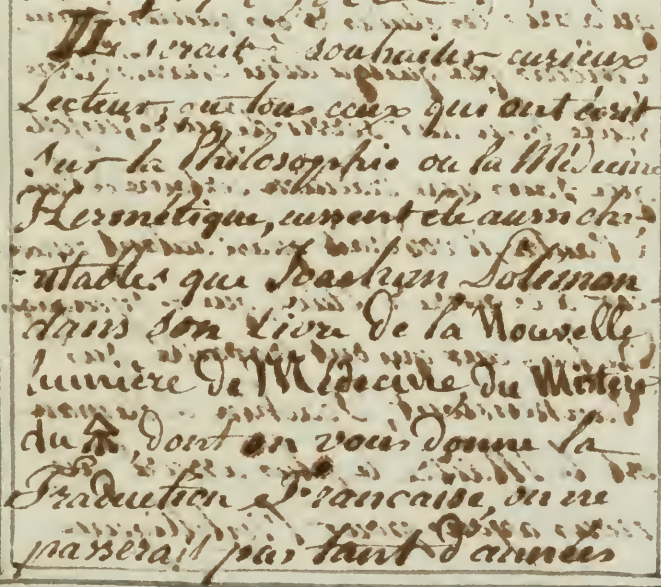 Il serait à souhaiter curieux
Lecteur, que tous ceux qui ont écrit
sur la Philosophie ou la Médecine
Hermétique, eussent été aussi cha-
ritables que Joachim Poleman
dans son Livre de la Nouvelle
lumière de Médecine du Mistère
du 🜍, dont on vous donne la
Traduction Française, on ne
passerait pas tant d'années